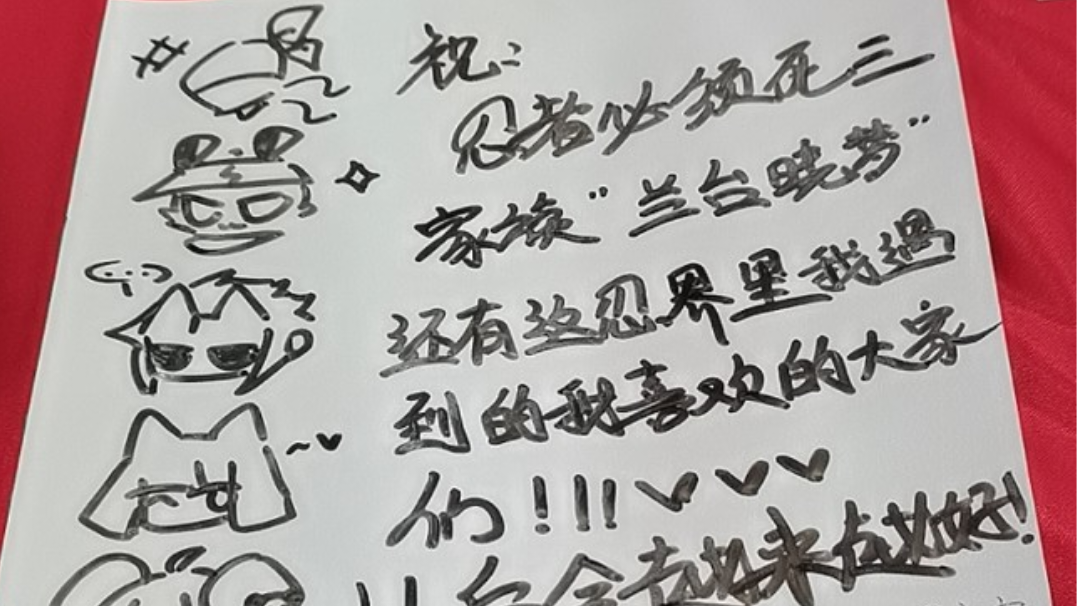 祝:
忍者必须死三
家族"兰台晓梦"
还有这忍界里我遇
到的我喜欢的大家
们!!!
会越来越好!